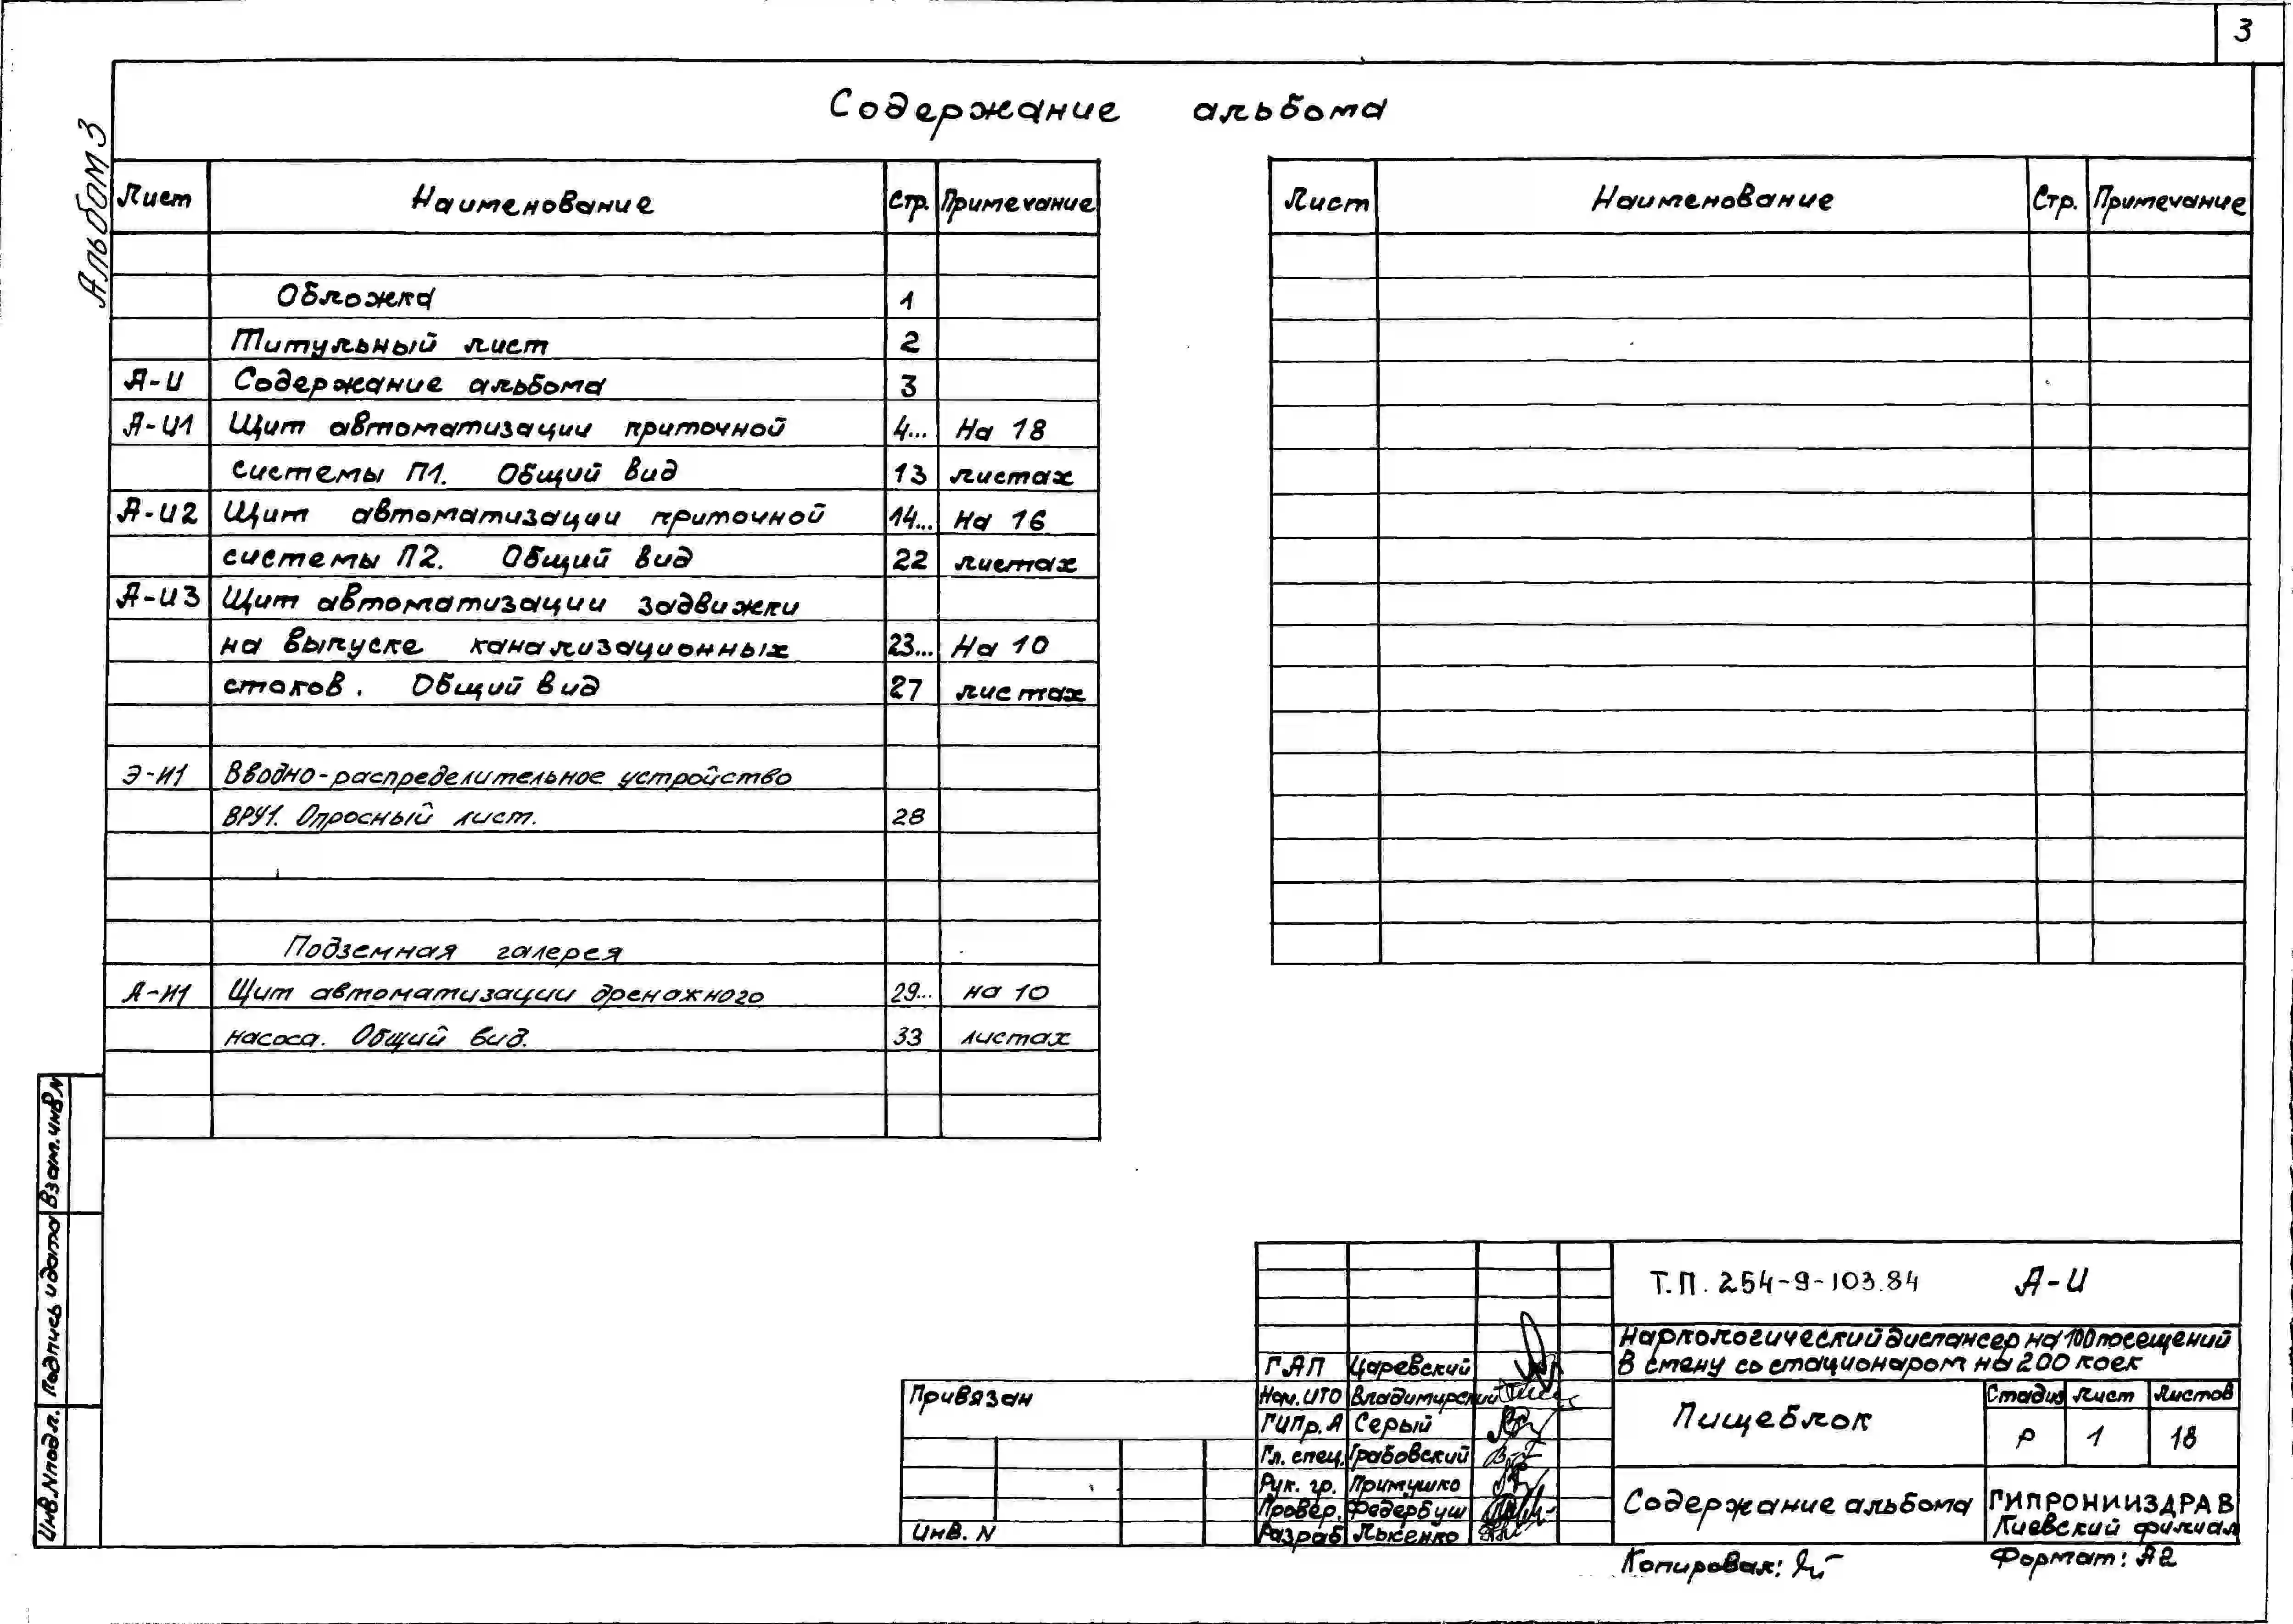 3
Альбом 3
Содержание альбома
Лист Наименование Стр. Примечание
Обложка 1
Титульный лист 2
А-И Содержание альбома 3
А-И1 Щит автоматизации приточной 4... На 18
системы П1. Общий вид 13 листах
А-И2 Щит автоматизации приточной 14... На 16
системы П2. Общий вид 22 листах
А-И3 Щит автоматизации задвижки
на выпуске канализационных 23... На 10
стоков. Общий вид 27 листах
Э-И1 Вводно-распределительное устройство
ВРУ1. Опросный лист. 28
Подземная галерея
А-И1 Щит автоматизации дренажного 29... на 10
насоса. Общий вид. 33 листах
Лист Наименование Стр. Примечание
Взам. инв. N
Подпись и дата
Инв. N подл.
Привязан
Инв. N
ГАП Царевский
Нач. ИТО Владимирский
ГИПр. А Серый
Гл. спец. Грабовский
Рук. гр. Примушко
Провер. Федербуш
Разраб. Лысенко
Т.П. 254-9-103.84 А-И
Наркологический диспансер на 100 посещений
в смену со стационаром на 200 коек
Пищеблок
Стадия Лист Листов
Р 1 18
Содержание альбома
ГИПРОНИИЗДРАВ
Киевский филиал
Копировал:
Формат: А2